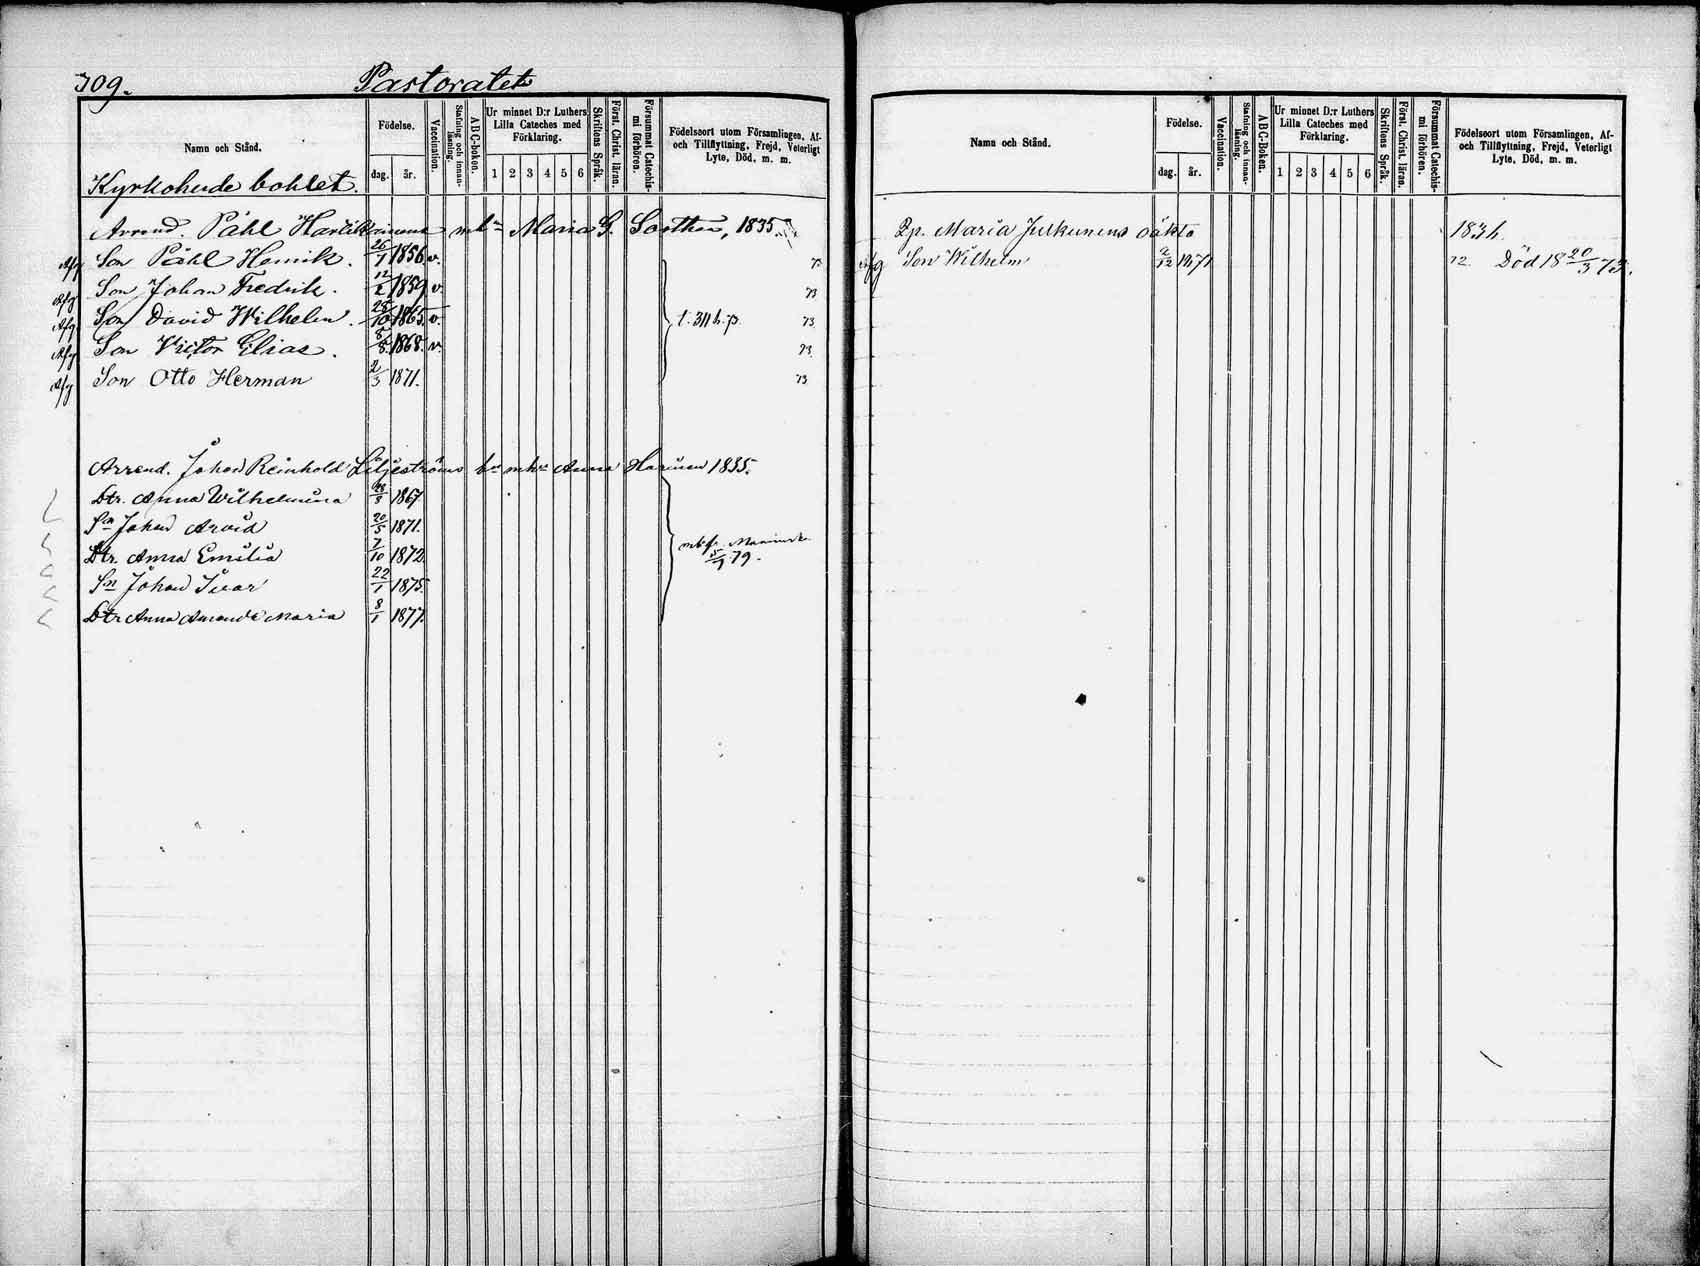 709. Pastoratet
Namn och Stånd.
Födelse.
dag. år.
Vaccination.
Stafning och innan-läsning.
ABC-boken.
Ur minnet D:r Luthers Lilla Cateches med Förklaring.
1 2 3 4 5 6
Skriftens Språk.
Först. Christ. läran.
Försummat Catechis-mi förhören.
Födelseort utom Församlingen, Af- och Tillflyttning, Frejd, Veterligt Lyte, Död, m. m.
Kyrkoherde bohlet.
Arrend. Påhl mkn Maria G. 1835
Afg Son Påhl Henrik. 26/1 1856. v. 73
Afg Son Johan Fredrik. 12/2 1859 v. 73
Afg. Son David Wilhelm. 28/10 1865. v. t. 311 b. p. 73
Afg Son Victor Elias. 8/8 1868. v. 73.
Afg Son Otto Herman 2/3 1871. 73
Arrend. Johan Reinhold Liljeströms bn mkn Anna 1835.
Dtr. Anna Wilhelmina 1867
Sn Johan Arvid 20/5 1871.
Dtr. Anna Emilia 7/10 1872. 79.
Sn Johan Ivar 22/1 1875.
Dtr Anna Amanda Maria 8/1 1877.
Namn och Stånd.
Födelse.
dag. år.
Vaccination.
Stafning och innan-läsning.
ABC-Boken.
Ur minnet D:r Luthers Lilla Cateches med Förklaring.
1 2 3 4 5 6
Skriftens Språk.
Först. Christ. läran.
Försummat Catechis-mi förhören.
Födelseort utom Församlingen, Af- och Tillflyttning, Frejd, Veterligt Lyte, Död, m. m.
Pp. Maria Julkunens oäkta
Afg Son Wilhelm 2/12 1871 72. Död 18 20/3 73.